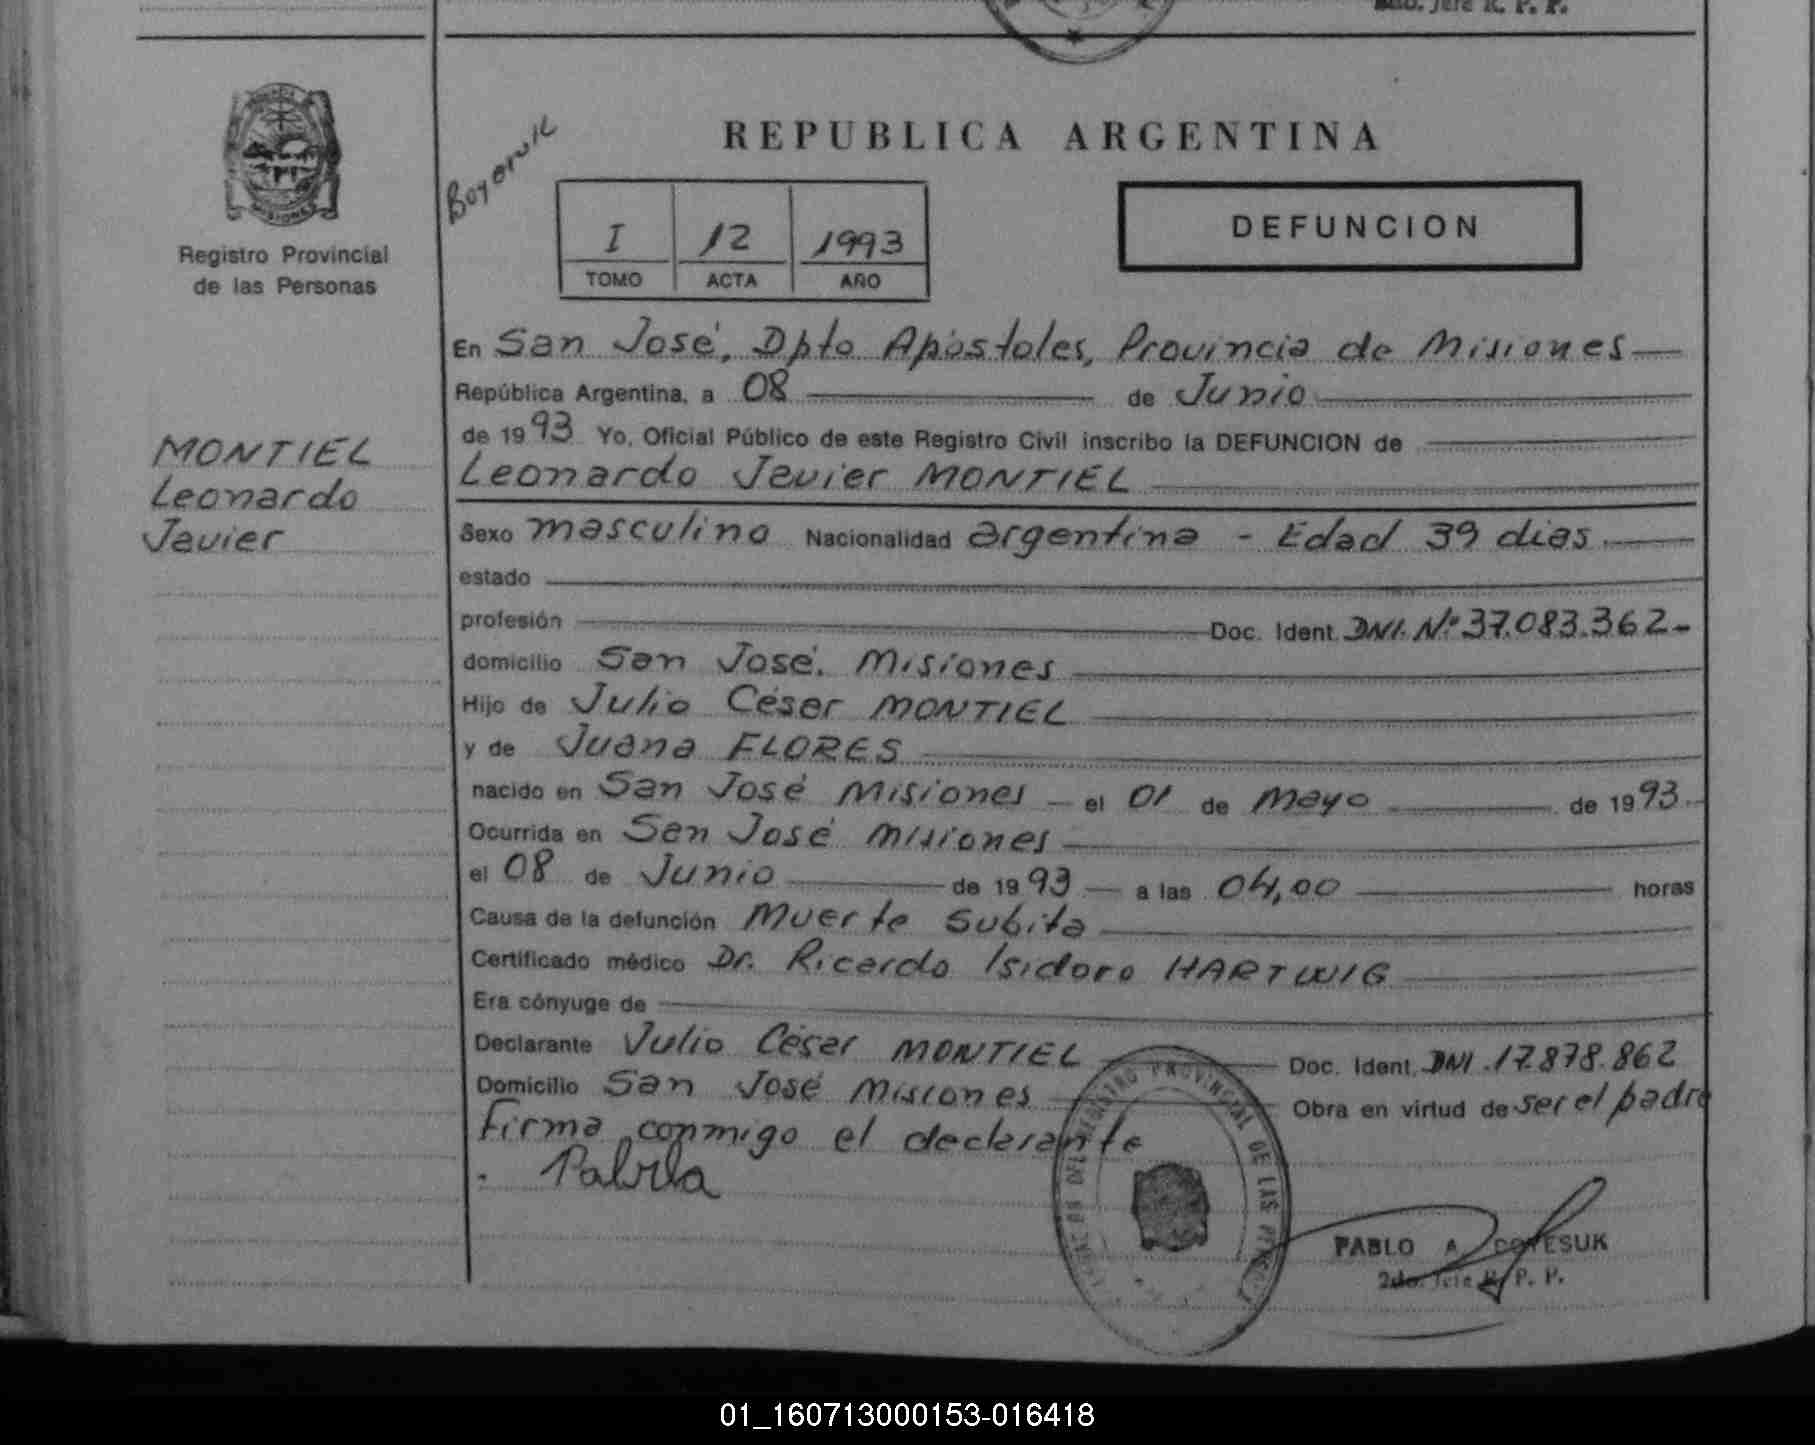 2do. Jefe R. P. P.
MISIONES
Registro Provincial
de las Personas
REPUBLICA ARGENTINA
I 12 1993
TOMO ACTA AÑO
DEFUNCION
En San José, Dpto Apóstoles, Provincia de Misiones
República Argentina, a 08 de Junio
de 1993 Yo, Oficial Público de este Registro Civil inscribo la DEFUNCION de
Leonardo Javier MONTIEL
MONTIEL
Leonardo
Javier
Sexo masculino Nacionalidad argentina - Edad 39 dias
estado
profesión Doc. Ident. DNI. Nº 37.083.362-
domicilio San José. Misiones
Hijo de Julio César MONTIEL
y de Juana FLORES
nacido en San José Misiones - el 01 de Mayo de 1993.
Ocurrida en San José Misiones
el 08 de Junio de 1993 a las 04,00 horas
Causa de la defunción Muerte Subita
Certificado médico Dr. Ricardo Isidoro HARTWIG
Era cónyuge de
Declarante Julio César MONTIEL Doc. Ident. DNI. 17.878.862
Domicilio San José Misiones Obra en virtud de ser el padre
Firma conmigo el declarante
REGISTRO PROVINCIAL DE LAS
PABLO A.
2do. Jefe R. P. P.
01_160713000153-016418